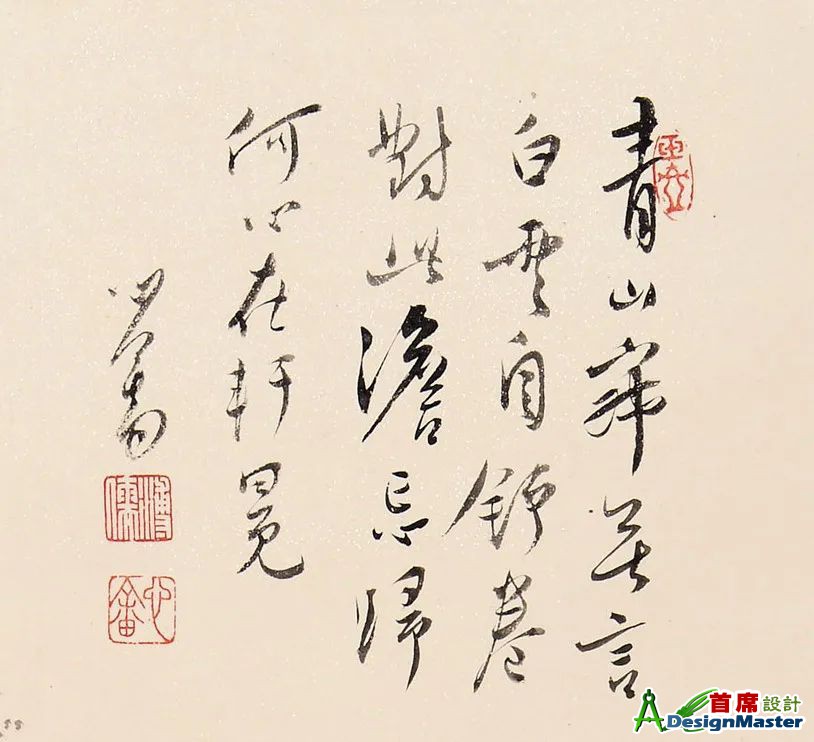 青山寂無言
白雲自舒卷
對此澹忘歸
何心在軒冕
心畬
溥儒
心畬
首席設計
DesignMaster